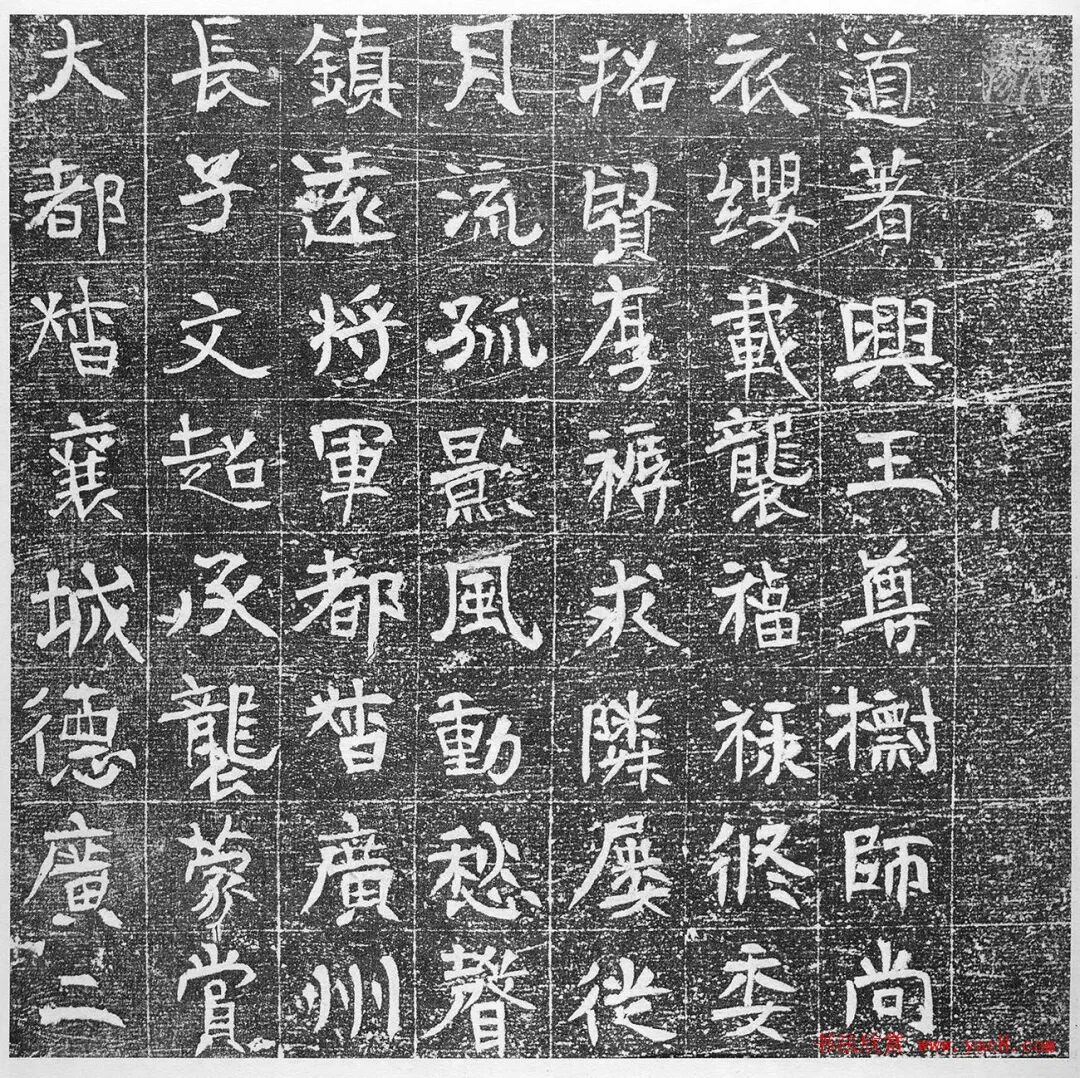 道著興王尊師尚
衣纓載襲福祿修委
招賢存褥求隣屢從
月流孤影風動愁聲
鎮遠將軍都督廣州
長子文超承襲蒙賞
大都督襄城德廣二
书法欣赏 www.yac8.com